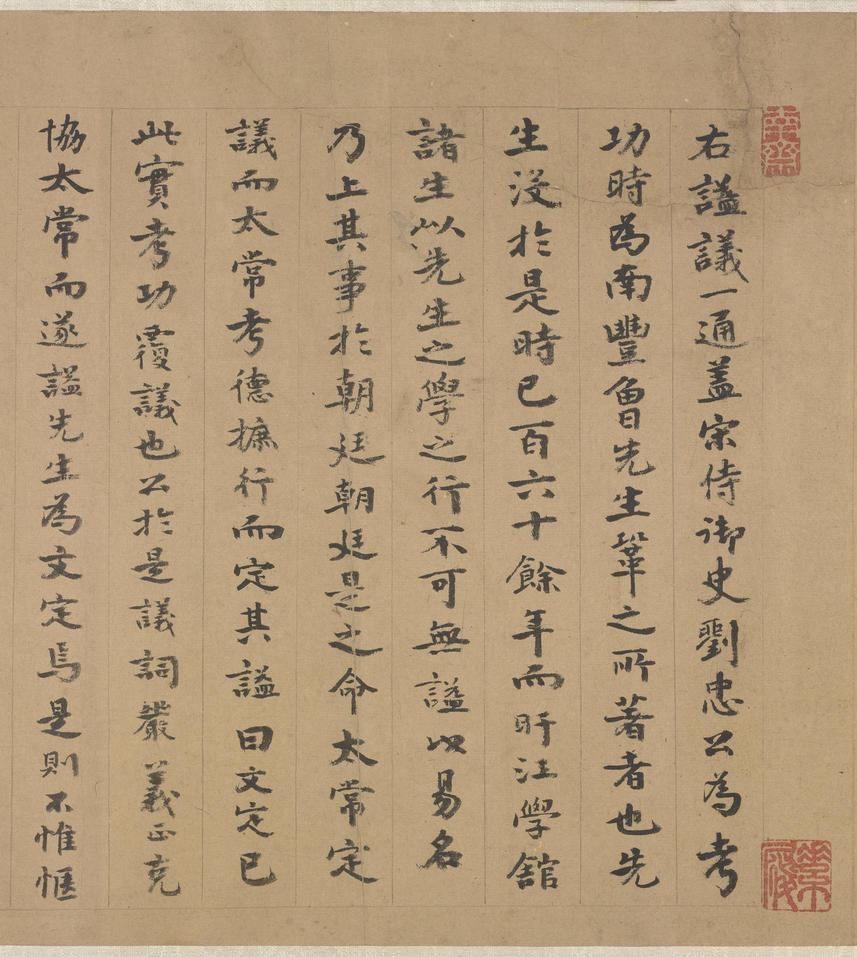 右謚議一通蓋宋侍御史劉忠公為考
功時為南豐曾先生鞏之所著者也先
生沒於是時已百六十餘年而旴江學舘
諸生以先生之學之行不可無謚以易名
乃上其事於朝廷朝廷是之命太常定
議而太常考德摭行而定其謚曰文定已
此實考功覆議也公於是議詞嚴義正克
協太常而遂謚先生為文定焉是則不惟愜